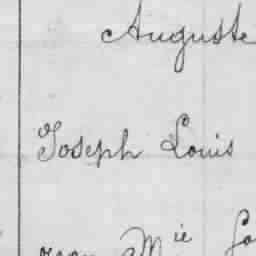 Auguste
Joseph Louis
Mie